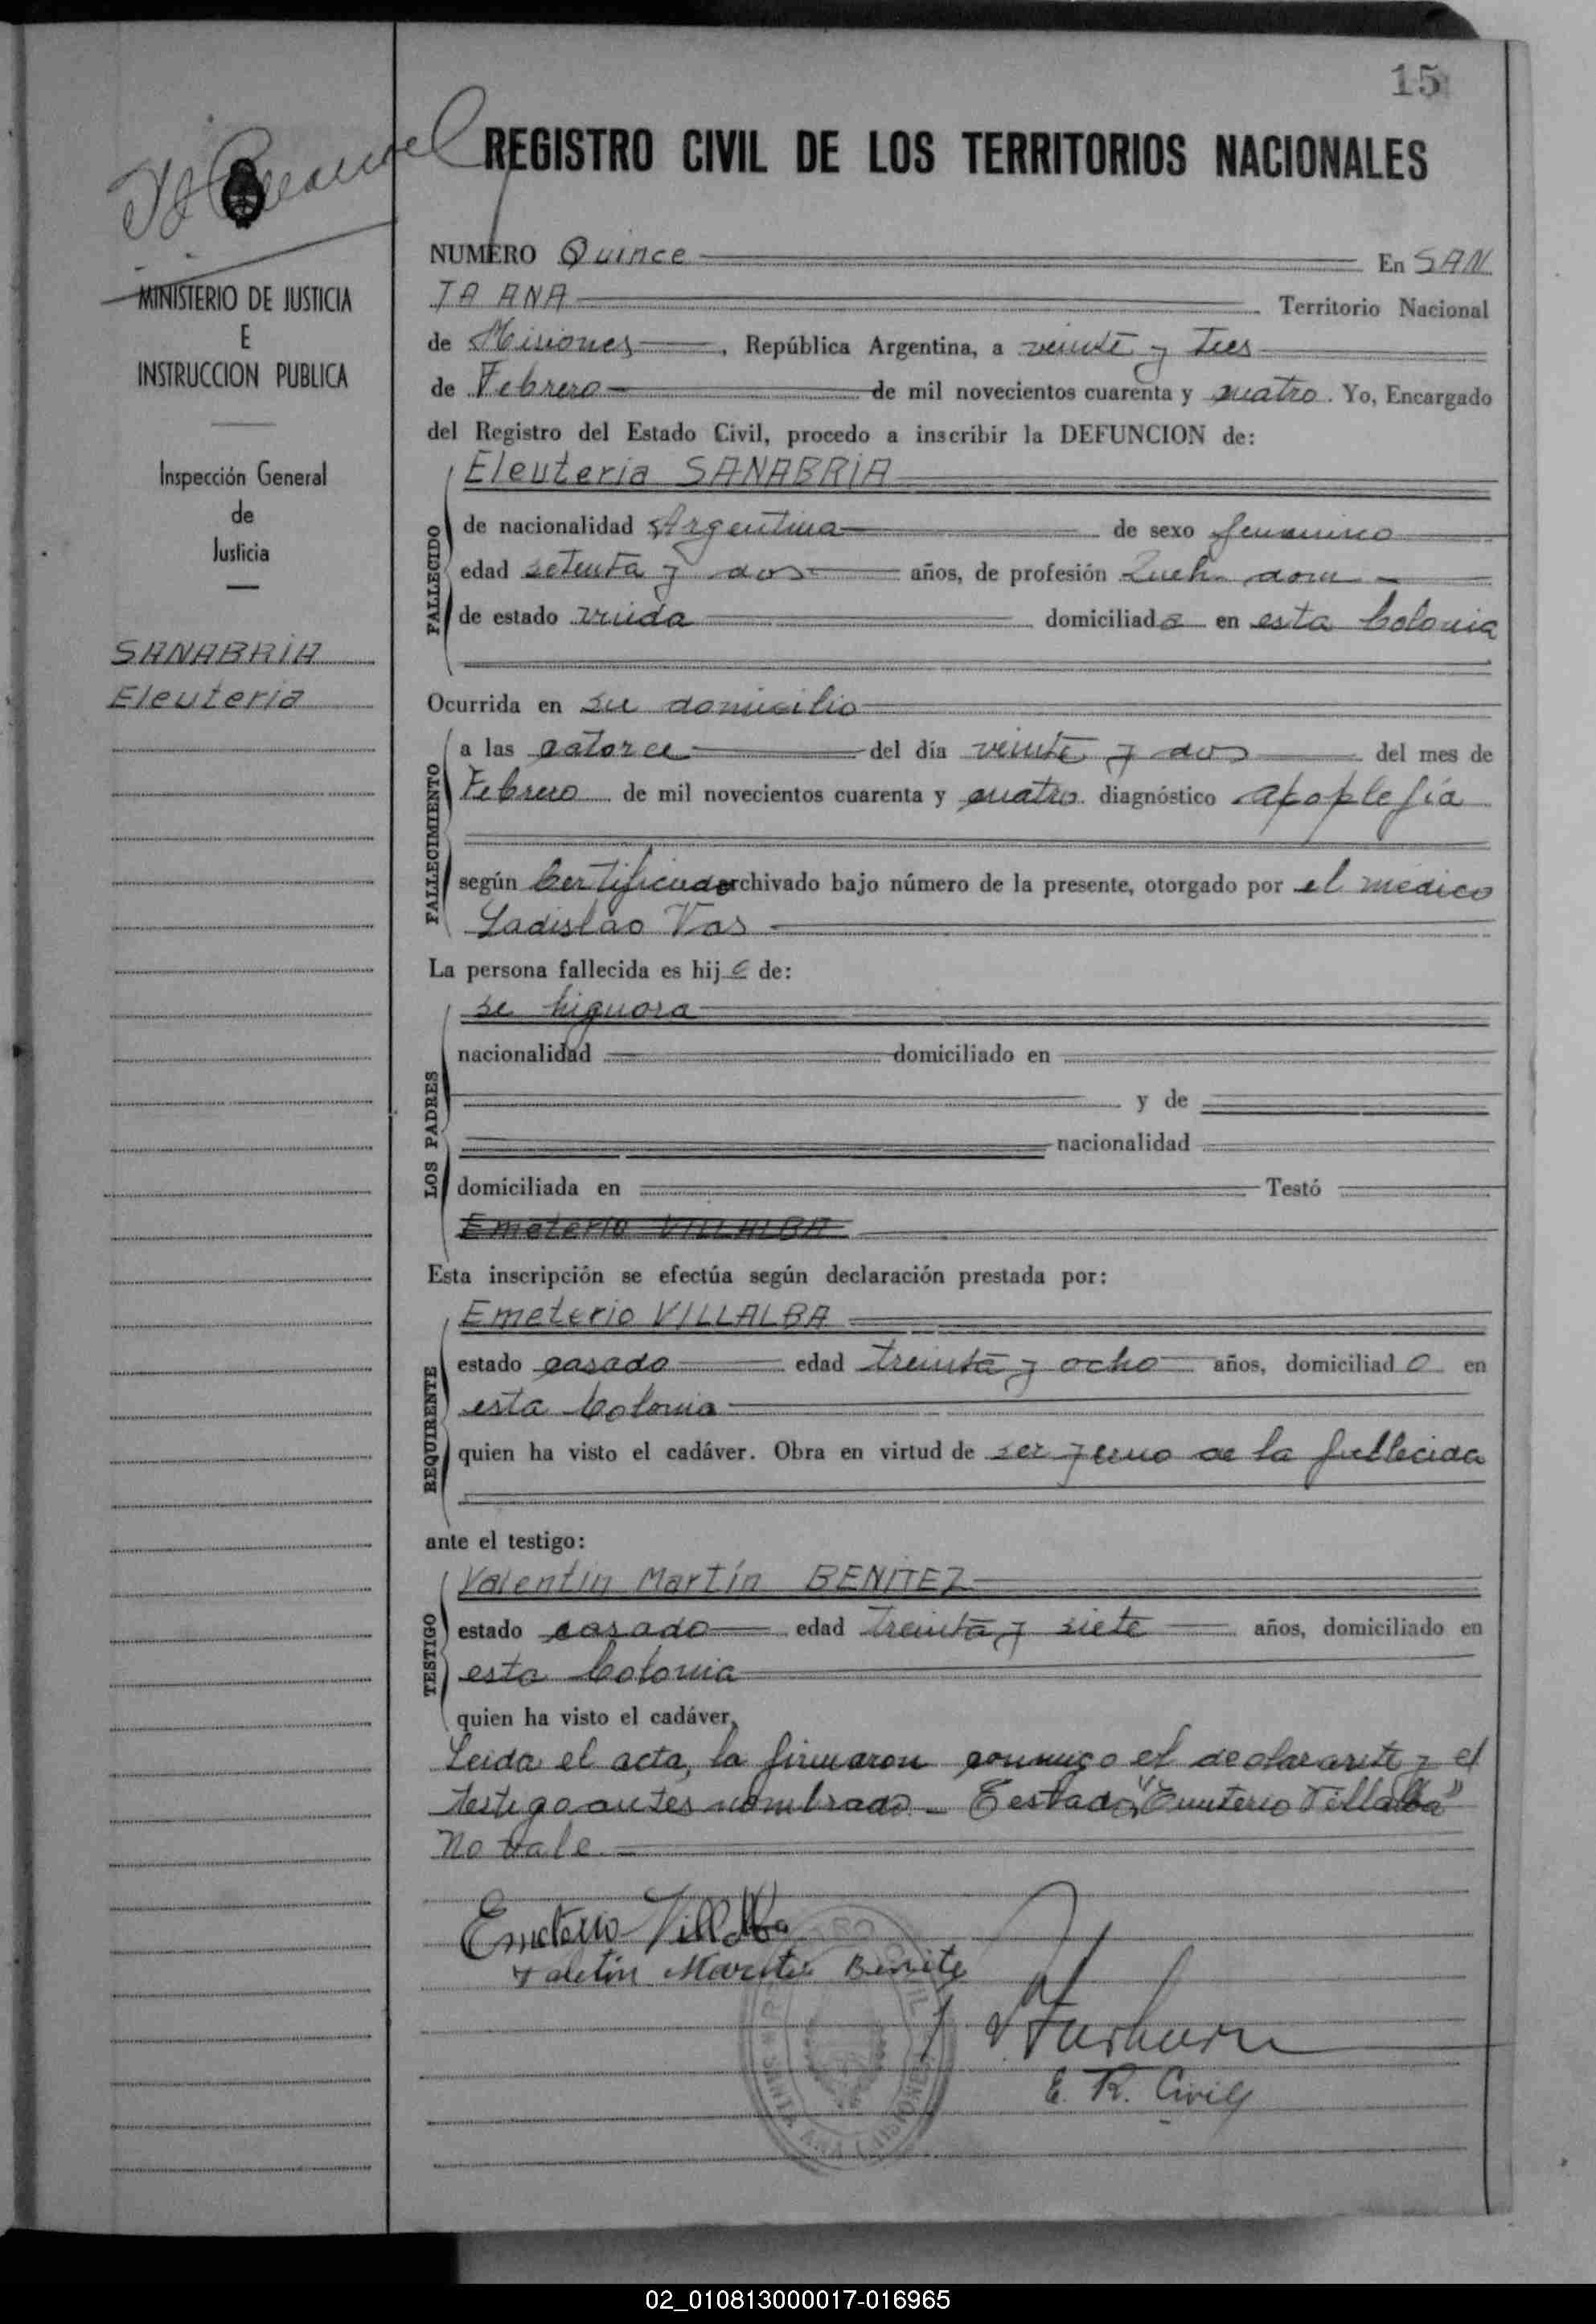 15
REGISTRO CIVIL DE LOS TERRITORIOS NACIONALES
MINISTERIO DE JUSTICIA
E
INSTRUCCION PUBLICA
Inspección General
de
Justicia
SANABRIA
Eleuteria
NUMERO Quince En SAN
TA ANA Territorio Nacional
de Misiones, República Argentina, a veinte y tres
de Febrero de mil novecientos cuarenta y cuatro. Yo, Encargado
del Registro del Estado Civil, procedo a inscribir la DEFUNCION de:
FALLECIDO
Eleuteria SANABRIA
de nacionalidad Argentina de sexo femenino
edad setenta y dos años, de profesión Queh. dom
de estado viuda domiciliada en esta Colonia
Ocurrida en su domicilio
FALLECIMIENTO
a las catorce del día veinte y dos del mes de
Febrero de mil novecientos cuarenta y cuatro diagnóstico apoplegía
según Certificado archivado bajo número de la presente, otorgado por el medico
Ladislao Vas
La persona fallecida es hij de:
LOS PADRES
se higuora
nacionalidad domiciliado en
y de
nacionalidad
domiciliada en Testó
Emeterio VILLALBA
Esta inscripción se efectúa según declaración prestada por:
REQUIRENTE
Emeterio VILLALBA
estado casado edad treinta y ocho años, domiciliado en
esta Colonia
quien ha visto el cadáver. Obra en virtud de ser yerno de la fallecida
ante el testigo:
TESTIGO
Valentin Martín BENITEZ
estado casado edad treinta y siete años, domiciliado en
esta Colonia
quien ha visto el cadáver.
Leida el acta, la firmaron conmigo el declarante y el
testigo antes nombrado - Testado "Emeterio Villalba"
no vale.
Emeterio Villalba
Benite
E. R. Civil
02_010813000017-016965